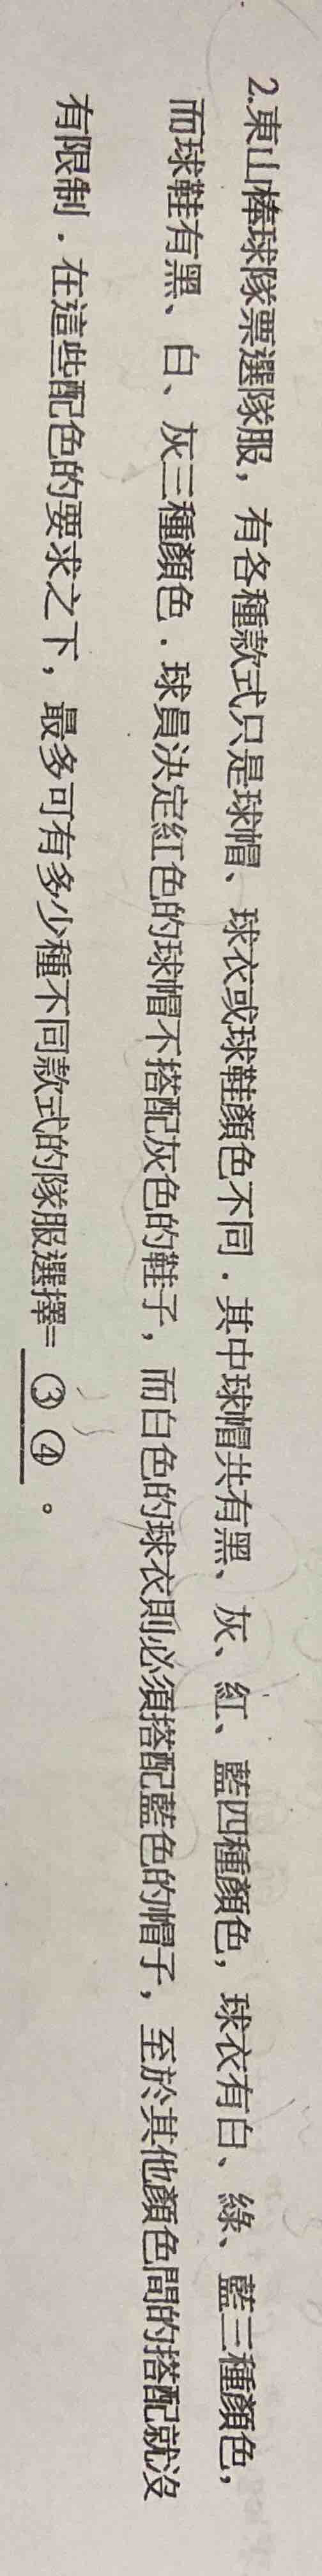 2.東山棒球隊票選隊服，有各種款式只是球帽、球衣或球鞋顏色不同．其中球帽共有黑、灰、紅、藍四種顏色，球衣有白、綠、藍三種顏色，
而球鞋有黑、白、灰三種顏色．球員決定紅色的球帽不搭配灰色的鞋子，而白色的球衣則必須搭配藍色的帽子，至於其他顏色間的搭配就沒
有限制．在這些配色的要求之下，最多可有多少種不同款式的隊服選擇= ③ ④ 。